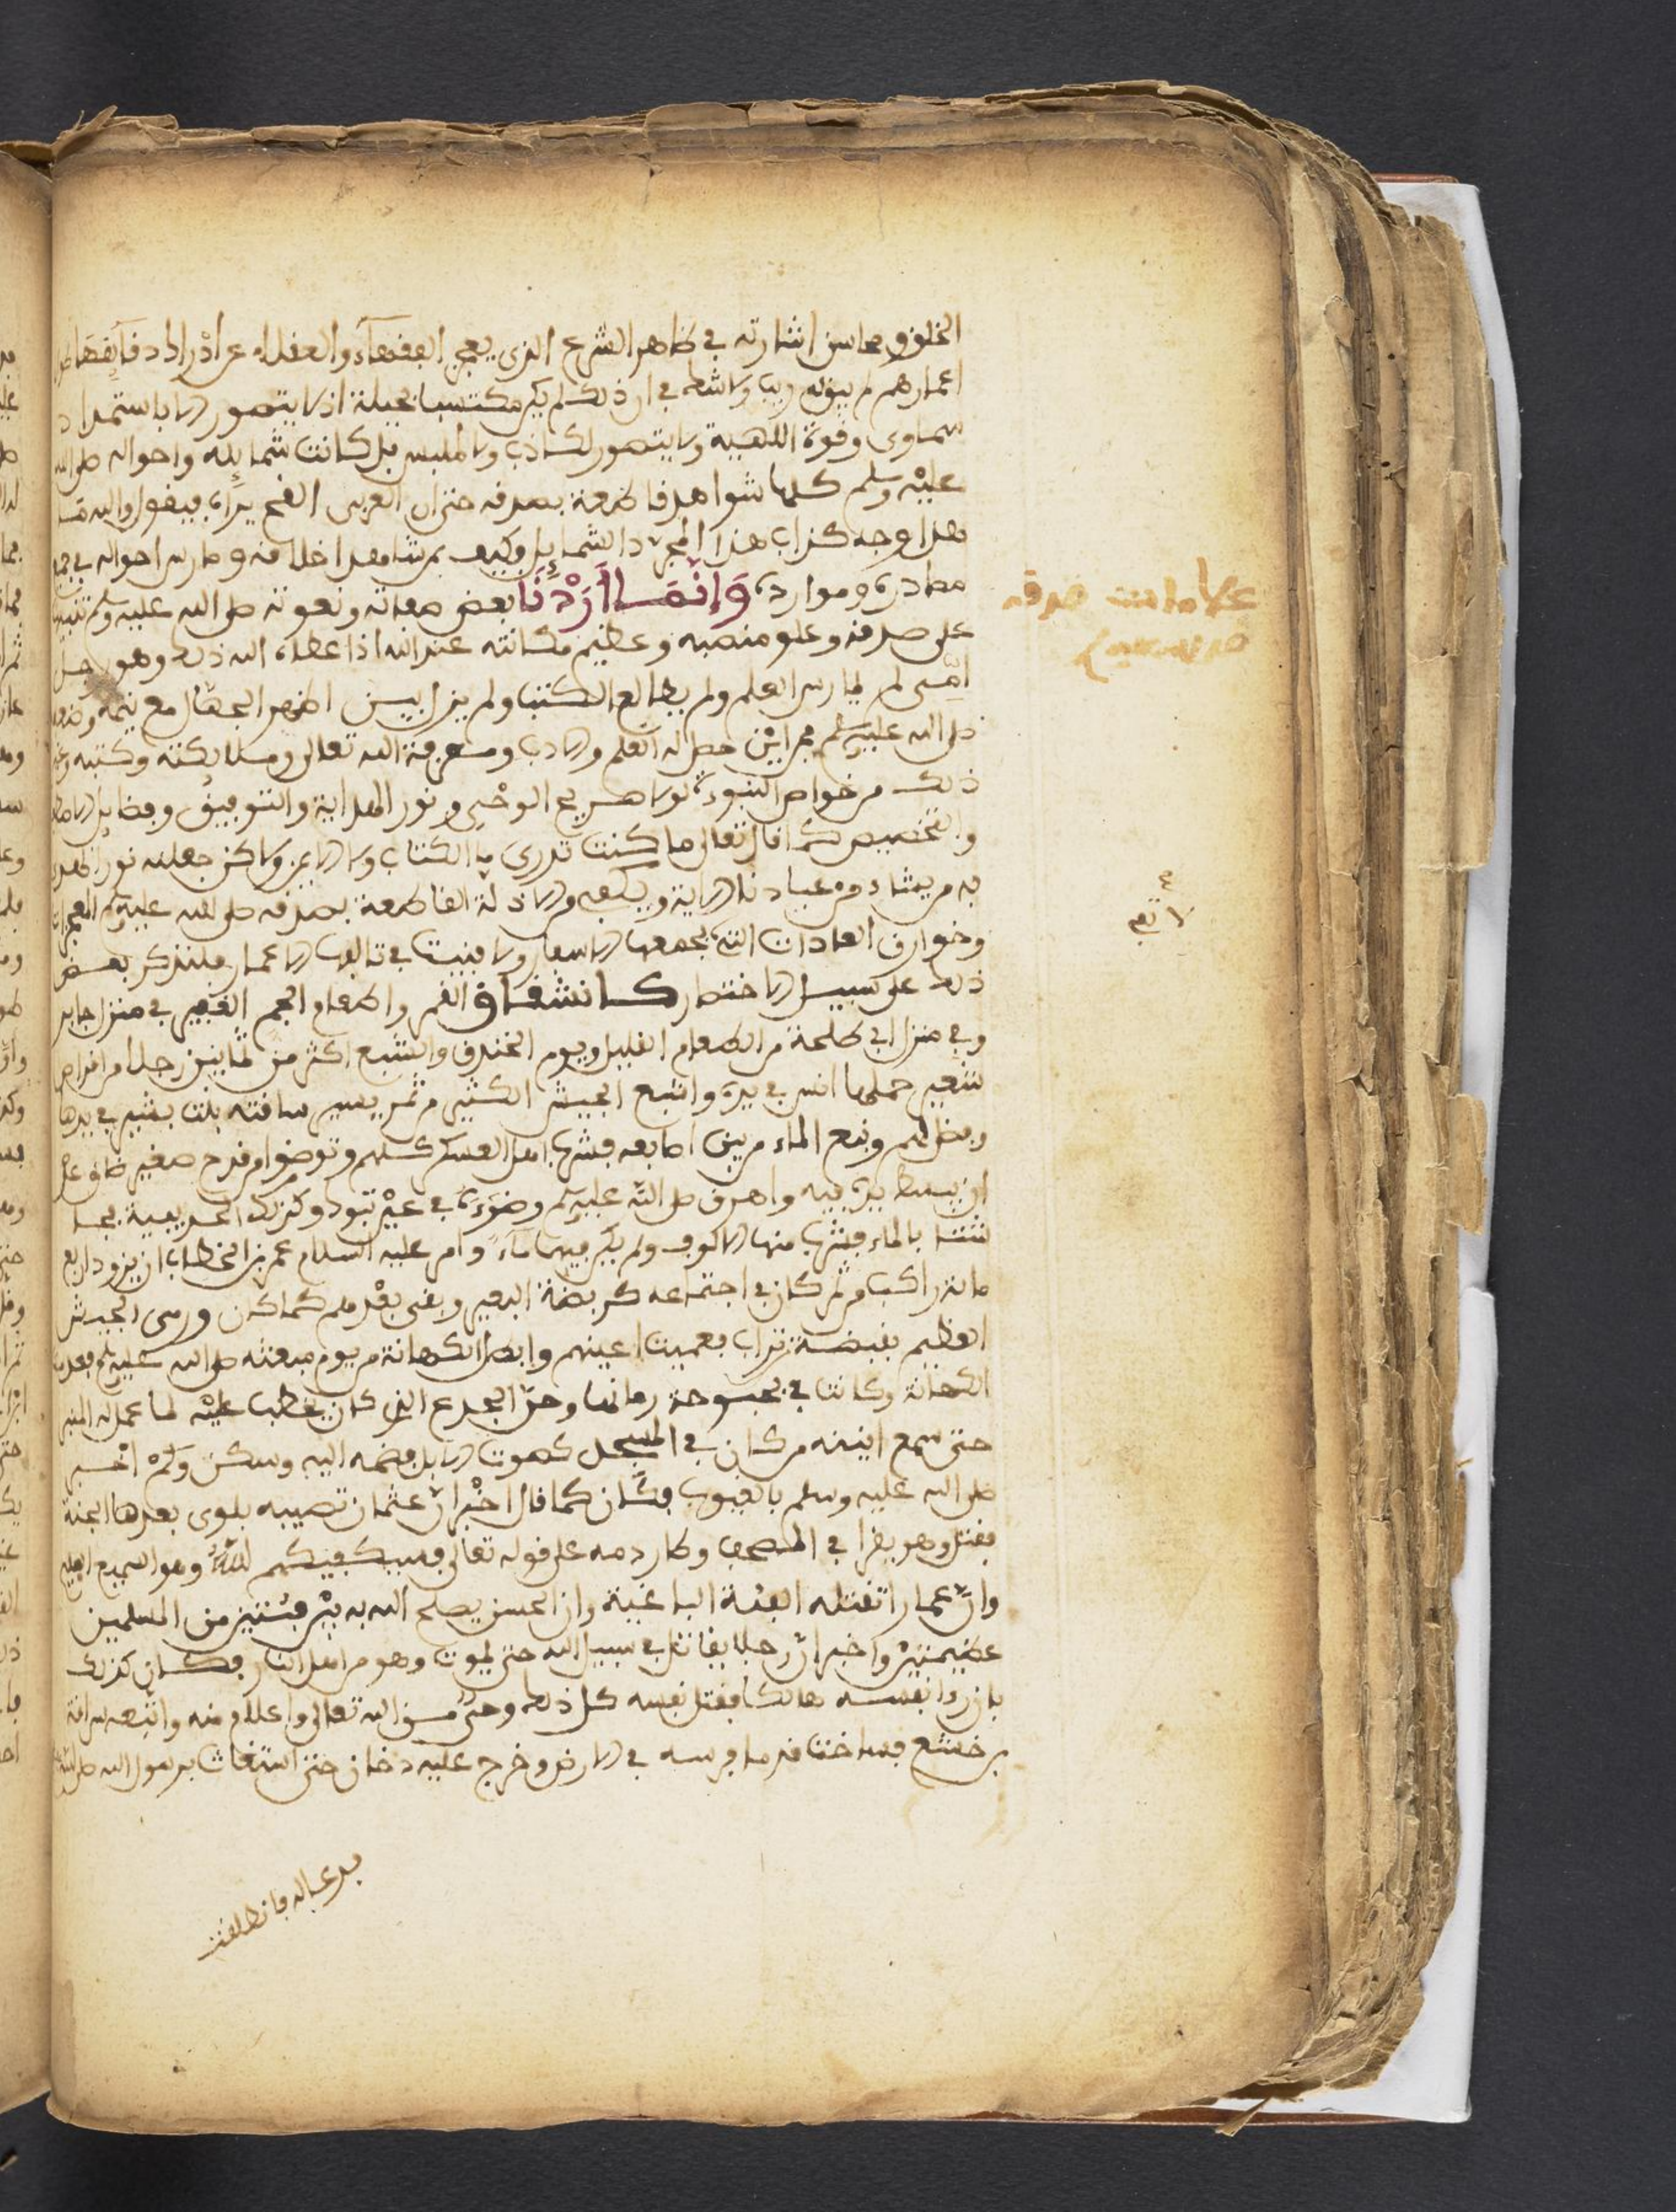 الخلق ومحاسن اشارته في ظاهر الشرع الذي يعجز الفقهاء والعقلاء عن ادراك دقايقها طول
اعمارهم لم يبق له ريب ولا شك في ان ذلك لم يكن مكتسبا بحيلة اذ لا يتصور الا باستمداد
سماوي وقوة اللهية ولا يتصور لكذاب ولا ملبس بل كانت شمايله واحواله صلى الله
عليه وسلم كلها شواهد قاطعة بصدقه حتى ان العربي القح يراه فيقول والله ما
هذا وجه كذاب هذا المجرد الشمايل فكيف بمن شاهد اخلاقه ومارس احواله في جميع
مصادره وموارده وَإنَّمَا أَرَدْنَا بعض صفاته ونعوته صلى الله عليه وسلم تنبيها
على صدقه وعلو منصبه وعظيم مكانته عند الله اذ اعطاه الله ذلك وهو رجل
امي لم يمارس العلم ولم يطالع الكتب ولم يزل بين اظهر الجهال مع يتمه وضعفه
صلى الله عليه وسلم فمن اين حصل له العلم والادب ومعرفة الله تعالى وملايكته وكتبه وغير
ذلك من خواص النبوة لولا صريح الوحي ونور الهداية والتوفيق وفضايل الاصطفا
والتخصيص كما قال تعالى ما كنت تدري ما الكتاب ولا الايمن ولاكن جعلنه نورا نهدي
به من يشاء من عبادنا الاية ويكفي والادلة القاطعة بصدقه صلى الله عليه وسلم المعجزات
وخوارق العادات التي جمعها الاسفار ولا فنيت في تاليفها الاعمار فلنذكر بعض
ذلك على سبيل الاختصار كانشقاق القمر واطعام الجم الغفير في منزل جابر
وفي منزل ابي طلحة من الطعام القليل ويوم الخندق واشبع اكثر من ثمانين رجلا من اقراص
شعير حملها انس في يده واشبع الجيش الكثير من تمر يسير ساقته بنت بشير في يدها
وفضل لهم ونبع الماء من بين اصابعه فشرب اهل العسكر كلهم وتوضوا من قدح صغير ضاق على
ان يبسط يده فيه واهرق صلى الله عليه وسلم وضوءه في عين تبوك وكذلك الحديبية فجا
شتا بالماء فشرب منها الالوف ولم يكن فيها ماء وامر عليه السلام عمر بن الخطاب ان يزود اربع
ماية راكب من تمر كان في اجتماعه كربضة البعير وبقي بعدهم كما كان ورمى الجيش
العظيم بقبضة تراب فعميت اعينهم وابطل الكهانة من يوم مبعثه صلى الله عليه وسلم فعدمت
الكهانة وكانت في بحبوحة زمانها وحن الجدع الذي كان يخطب عليه لما عمل له المنبر
حتى سمع انينه من كان في المسجد كصوت الابل فضمه اليه وسكن وكم اخبر
صلى الله عليه وسلم بالغيوب فكان كما قال اخبر ان عثمان تصيبه بلوى بعدها الجنة
فقتل وهو يقرا في المصحف وكان دمه على قوله تعالى فسيكفيكهم الله وهو السميع العليم
وان عمارا تقتله الفئة الباغية وان الحسن يصلح الله به بين فئتين من المسلمين
عظيمتين واخبر ان رجلا يقاتل في سبيل الله حتى يموت وهو من اهل النار فكان كذلك
بان رد نفسه هالكا فقتل نفسه كل ذلك وحي من الله تعالى واعلام منه واتبعه سراقة
بن خشعم فساخت قدما فرسه في الارض وخرج عليه دخان حتى استغاث برسول الله صلى الله عليه
علامات صدقه
صلى الله عليه وسلم
لا تفى
فدعا له فانطلقت